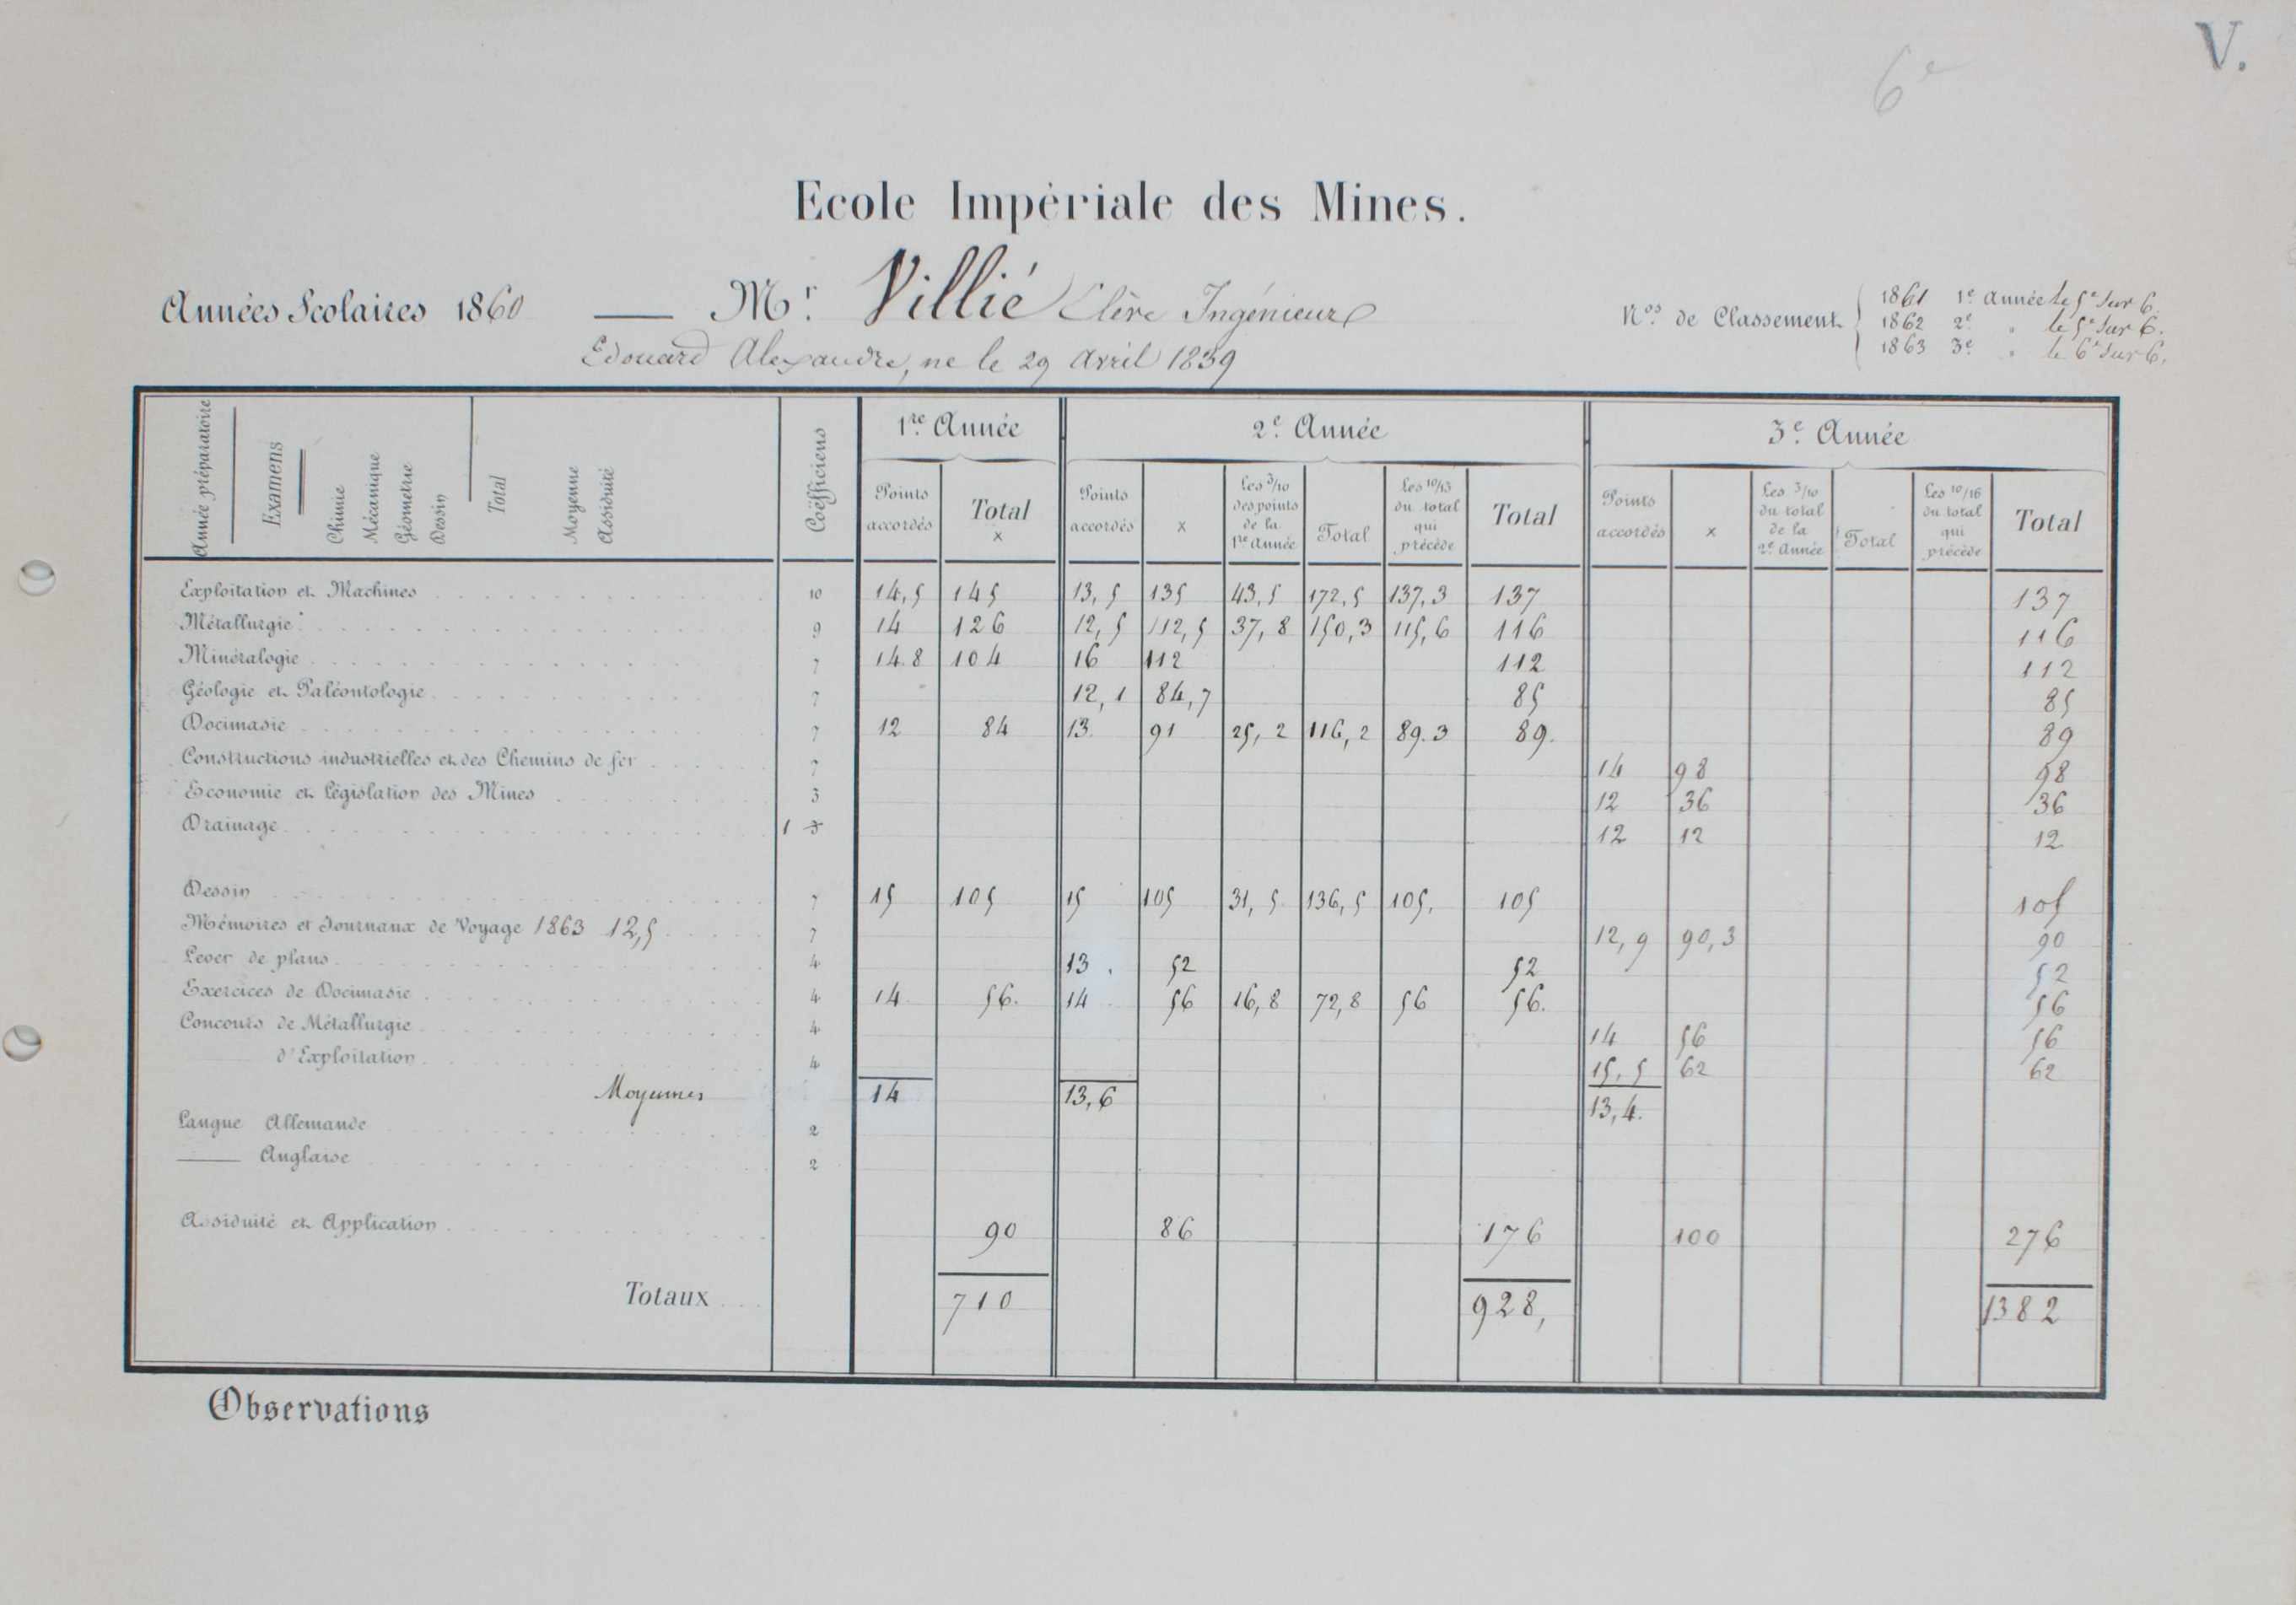 V.
6e
Ecole Impériale des Mines.
Années Scolaires 1860 — Mr. Villié Elève Ingénieur
Edouard Alexandre, né le 29 Avril 1839
Nos. de Classement
1861 1e. Année le 5e sur 6.
1862 2e. " le 5e sur 6.
1863 3e. " le 6e sur 6.
Année préparatoire
Examens
Chimie
Mécanique
Géometrie
Dessin
Total
Moyenne
Assiduité
Coëfficiens
1re. Année 2e. Année 3e. Année
Points accordés
Total x
Points accordés
x
Les 3/10 des points de la 1re Année
Total
Les 10/13 du total qui précède
Total
Points accordés
x
Les 3/10 du total de la 2e Année
Total
Les 10/16 du total qui précède
Total
Exploitation et Machines 10 14,5 145 13,5 135 43,5 172,5 137,3 137 137
Métallurgie 9 14 126 12,5 112,5 37,8 150,3 115,6 116 116
Minéralogie 7 14.8 104 16 112 112 112
Géologie et Paléontologie 7 12,1 84,7 85 85
Docimasie 7 12 84 13. 91 25,2 116,2 89.3 89. 89
Constructions industrielles et des Chemins de fer 7 14 98 98
Economie et Législation des Mines 3 12 36 36
Drainage 1 3 12 12 12
Dessin 7 15 105 15 105 31,5. 136,5 105, 105 105
Mémoires et Journaux de Voyage 1863 12,5 7 12,9 90,3 90
Lever de plans 4 13. 52 52 52
Exercices de Docimasie 4 14 56. 14 56 16,8 72,8 56 56. 56
Concours de Métallurgie 4 14 56 56
— d'Exploitation 4 15,5 62 62
Moyennes 14 13,6 13,4.
Langue Allemande 2
— Anglaise 2
Assiduité et Application 90 86 176 100 276
Totaux 710 928, 1382
Observations